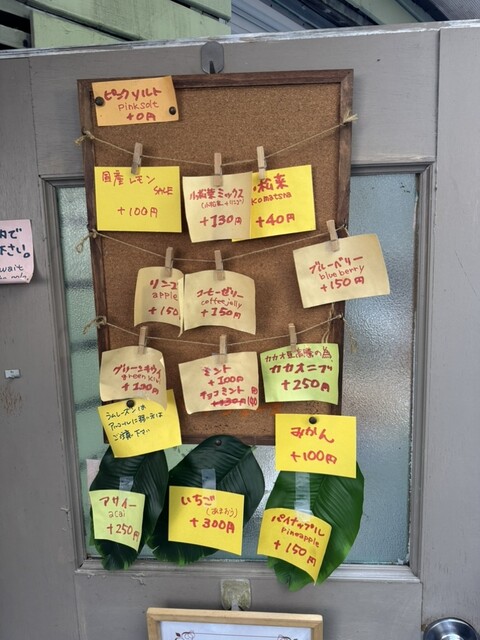 ピンクソルト
pinksolt
+0円
国産レモン
SALE
+100円
小松菜ミックス
+130円
小松菜
komatsna
+40円
ブルーベリー
blueberry
+150円
リンゴ
apple
+150
コーヒーゼリー
coffeejelly
+150円
グリーンキウイ
green kiwi
+130円
ミント
+100円
チョコミント
カカオ豆高騰の為
カカオニブ
+250円
ラムレーズンは
アルコールに弱い方は
ご注意下さい
みかん
+100円
アサイー
acai
+250円
いちご
(あまおう)
+300円
パイナップル
pineapple
+150円
下さい。
wait